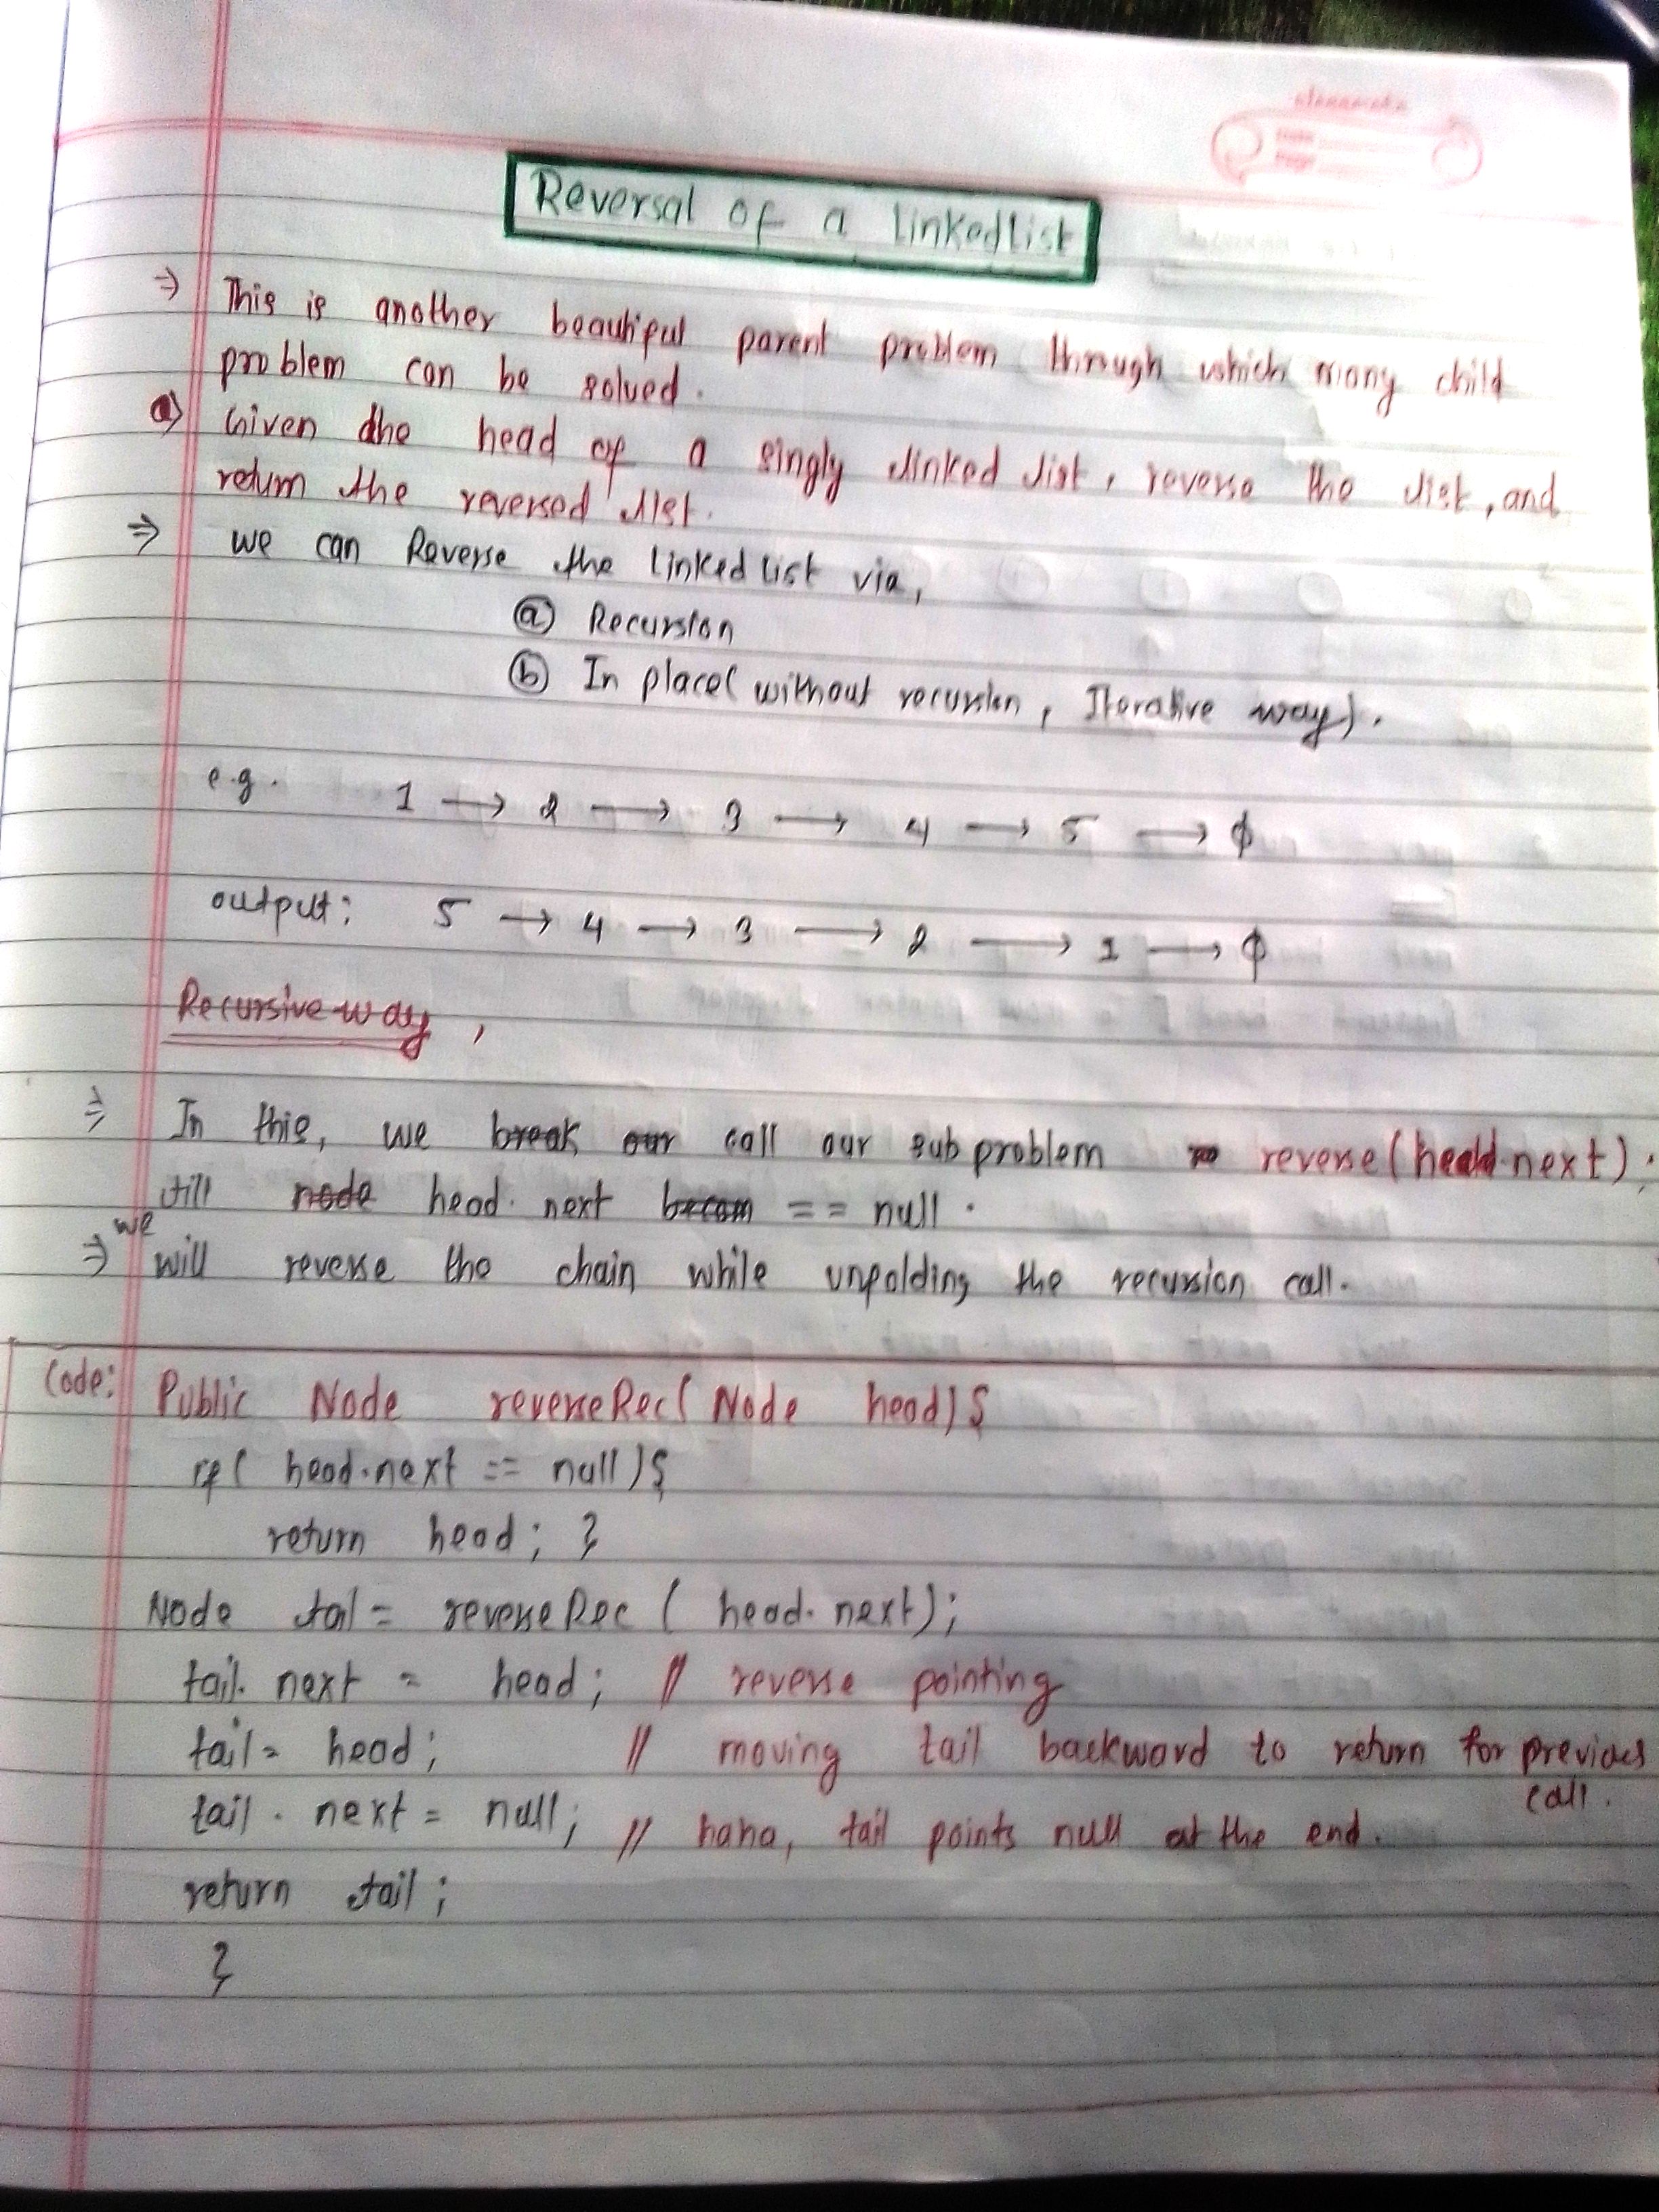 classmate
Date
Page
Reversal of a LinkedList
⇒ This is another beautiful parent problem through which many child
problem can be solved.
Q) Given the head of a singly linked list, reverse the list, and
return the reversed list.
⇒ we can Reverse the Linked List via,
ⓐ Recursion
ⓑ In place( without recursion, Iterative way).
e.g. 1 → 2 → 3 → 4 → 5 → ϕ
output: 5 → 4 → 3 → 2 → 1 → ϕ
Recursive way,
⇒ In this, we break our call our sub problem reverse(head.next);
till node head.next becom == null.
⇒ we will reverse the chain while unfolding the recursion call.
Code: Public Node reverseRec( Node head){
if( head.next == null){
return head; }
Node tail = reverseRec ( head.next);
tail.next = head; // reverse pointing
tail = head; // moving tail backward to return for previous
call.
tail.next = null; // haha, tail points null at the end.
return tail;
}